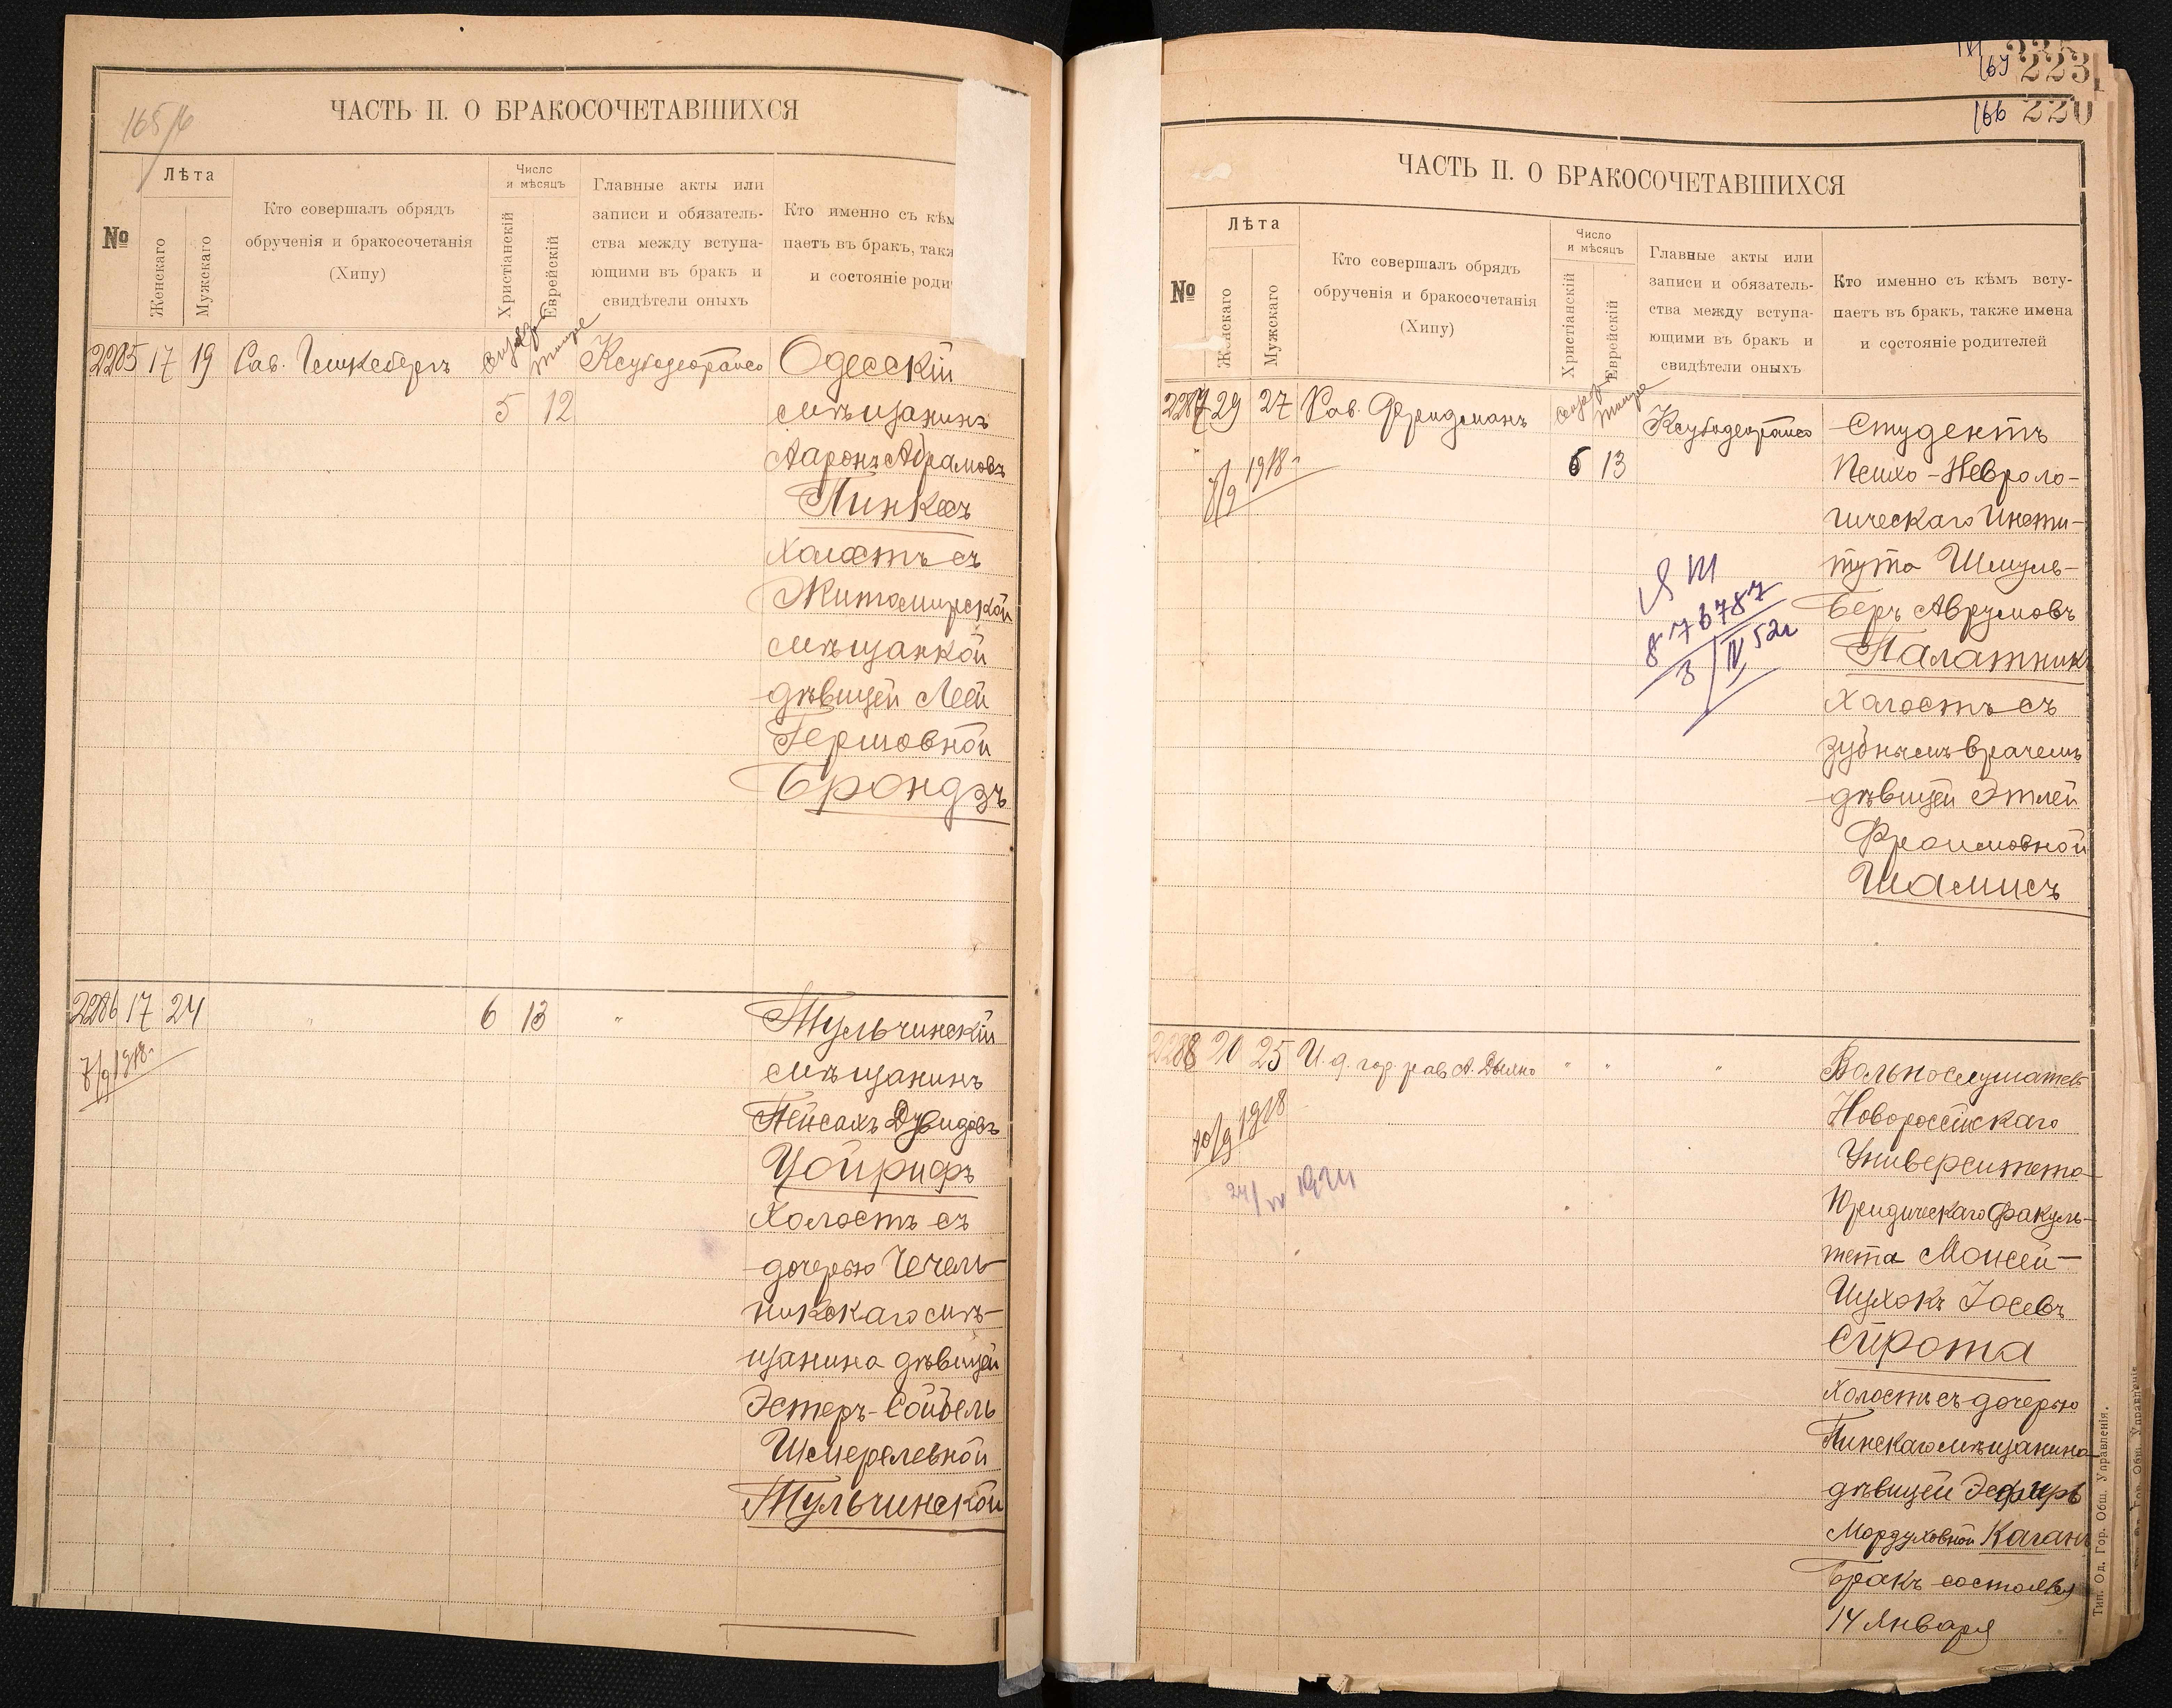 165/6
ЧАСТЬ II. О БРАКОСОЧЕТАВШИХСЯ
№
Лѣта
Женскаго
Мужскаго
Кто совершалъ обрядъ
обрученія и бракосочетанія
(Хипу)
Число
и мѣсяцъ
Христіанскій
Еврейскій
Главные акты или
записи и обязатель-
ства между вступа-
ющими въ бракъ и
свидѣтели оныхъ
Кто именно съ кѣм
паетъ въ бракъ, такж
и состояніе роди
2285 17 19 Рав.
5 12
Одесскій
мѣщанинъ
Ааронъ Абрамовъ
Пинкесъ
холостъ съ
Житомирской
мѣщанкой
дѣвицей Леей
Гершовной
Брондзъ
2286 17 24 " 6 13 "
7/9 1918 г
Тульчинскій
мѣщанинъ
Пейсахъ Дувидовъ
Цойрифъ
Холостъ съ
дочерью Чечель-
никскаго мѣ-
щанина дѣвицей
Эстеръ-Сойбель
Шмерелевной
Тульчинской
223
166 220
ЧАСТЬ II. О БРАКОСОЧЕТАВШИХСЯ
№
Лѣта
Женскаго
Мужскаго
Кто совершалъ обрядъ
обрученія и бракосочетанія
(Хипу)
Число
и мѣсяцъ
Христіанскій
Еврейскій
Главные акты или
записи и обязатель-
ства между вступа-
ющими въ бракъ и
свидѣтели оныхъ
Кто именно съ кѣмъ всту-
паетъ въ бракъ, также имена
и состояніе родителей
2287 29 27 Рав. Фридманъ
6 13
1918 г
Студентъ
Психо-Невроло-
гическаго Инсти-
тута Шмуль-
Беръ Аврумовъ
Палатникъ
Холостъ съ
зубнымъ врачемъ
дѣвицей Этлей
Фроимовной
Шамисъ
Я III
876787
3/IV 52г
2288 20 25 И. д. гор. рав. А. Дыхно " " "
10/9 1918
24/IV 1924
Вольнослушатель
Новороссійскаго
Университета
Юридическаго Факуль-
тета Моисей-
Ицхокъ Іосевъ
Сирота
холостъ съ дочерью
Пинскаго мѣщанина
дѣвицей Эсфирь
Мордуховной Каганъ
Бракъ состоялся
14 Января
Тип. Од. Гор. Общ. Управленія.